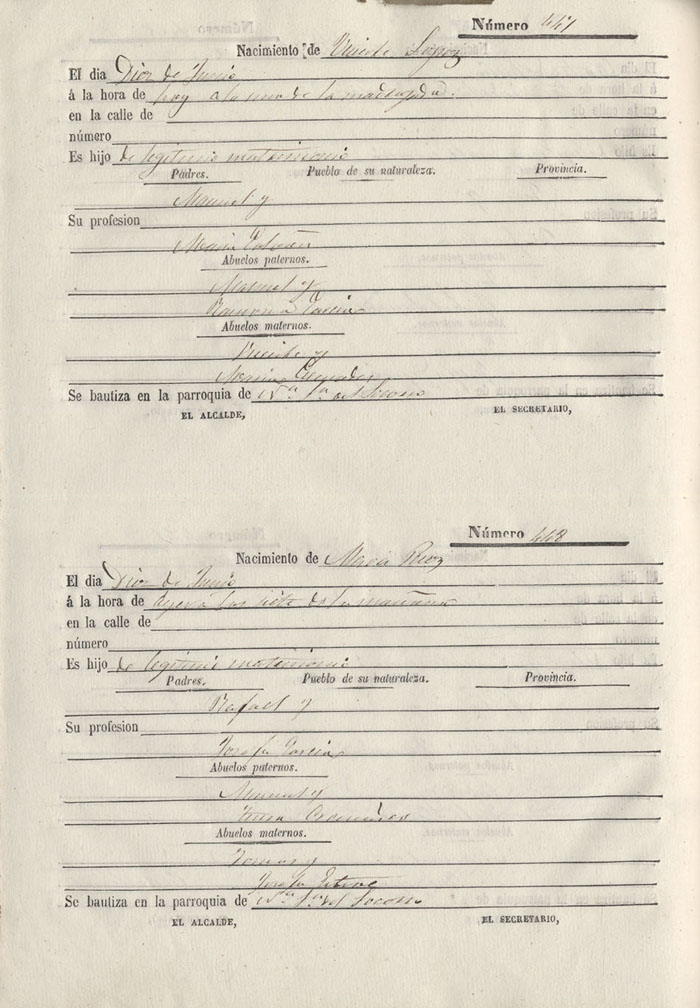 Número 447
Nacimiento de Vicente Lopez
El dia Diez de Junio
á la hora de hoy a la una de la madrugada.
en la calle de
número
Es hijo de legitimo matrimonio
Padres. Pueblo de su naturaleza. Provincia.
Manuel y
Su profesion
Maria
Abuelos paternos.
Manuel y
Ramona Garcia
Abuelos maternos.
Vicente y
Maria
Se bautiza en la parroquia de Nª Sª del Socorro
EL ALCALDE, EL SECRETARIO,
Número 448
Nacimiento de Maria Perez
El dia Diez de Junio
á la hora de ayer a las siete de la mañana
en la calle de
número
Es hijo de legitimo matrimonio
Padres. Pueblo de su naturaleza. Provincia.
Rafael y
Su profesion
Josefa Garcia
Abuelos paternos.
Manuel y
Abuelos maternos.
Tomas y
Josefa Esteve
Se bautiza en la parroquia de Nª Sª del Socorro
EL ALCALDE, EL SECRETARIO,